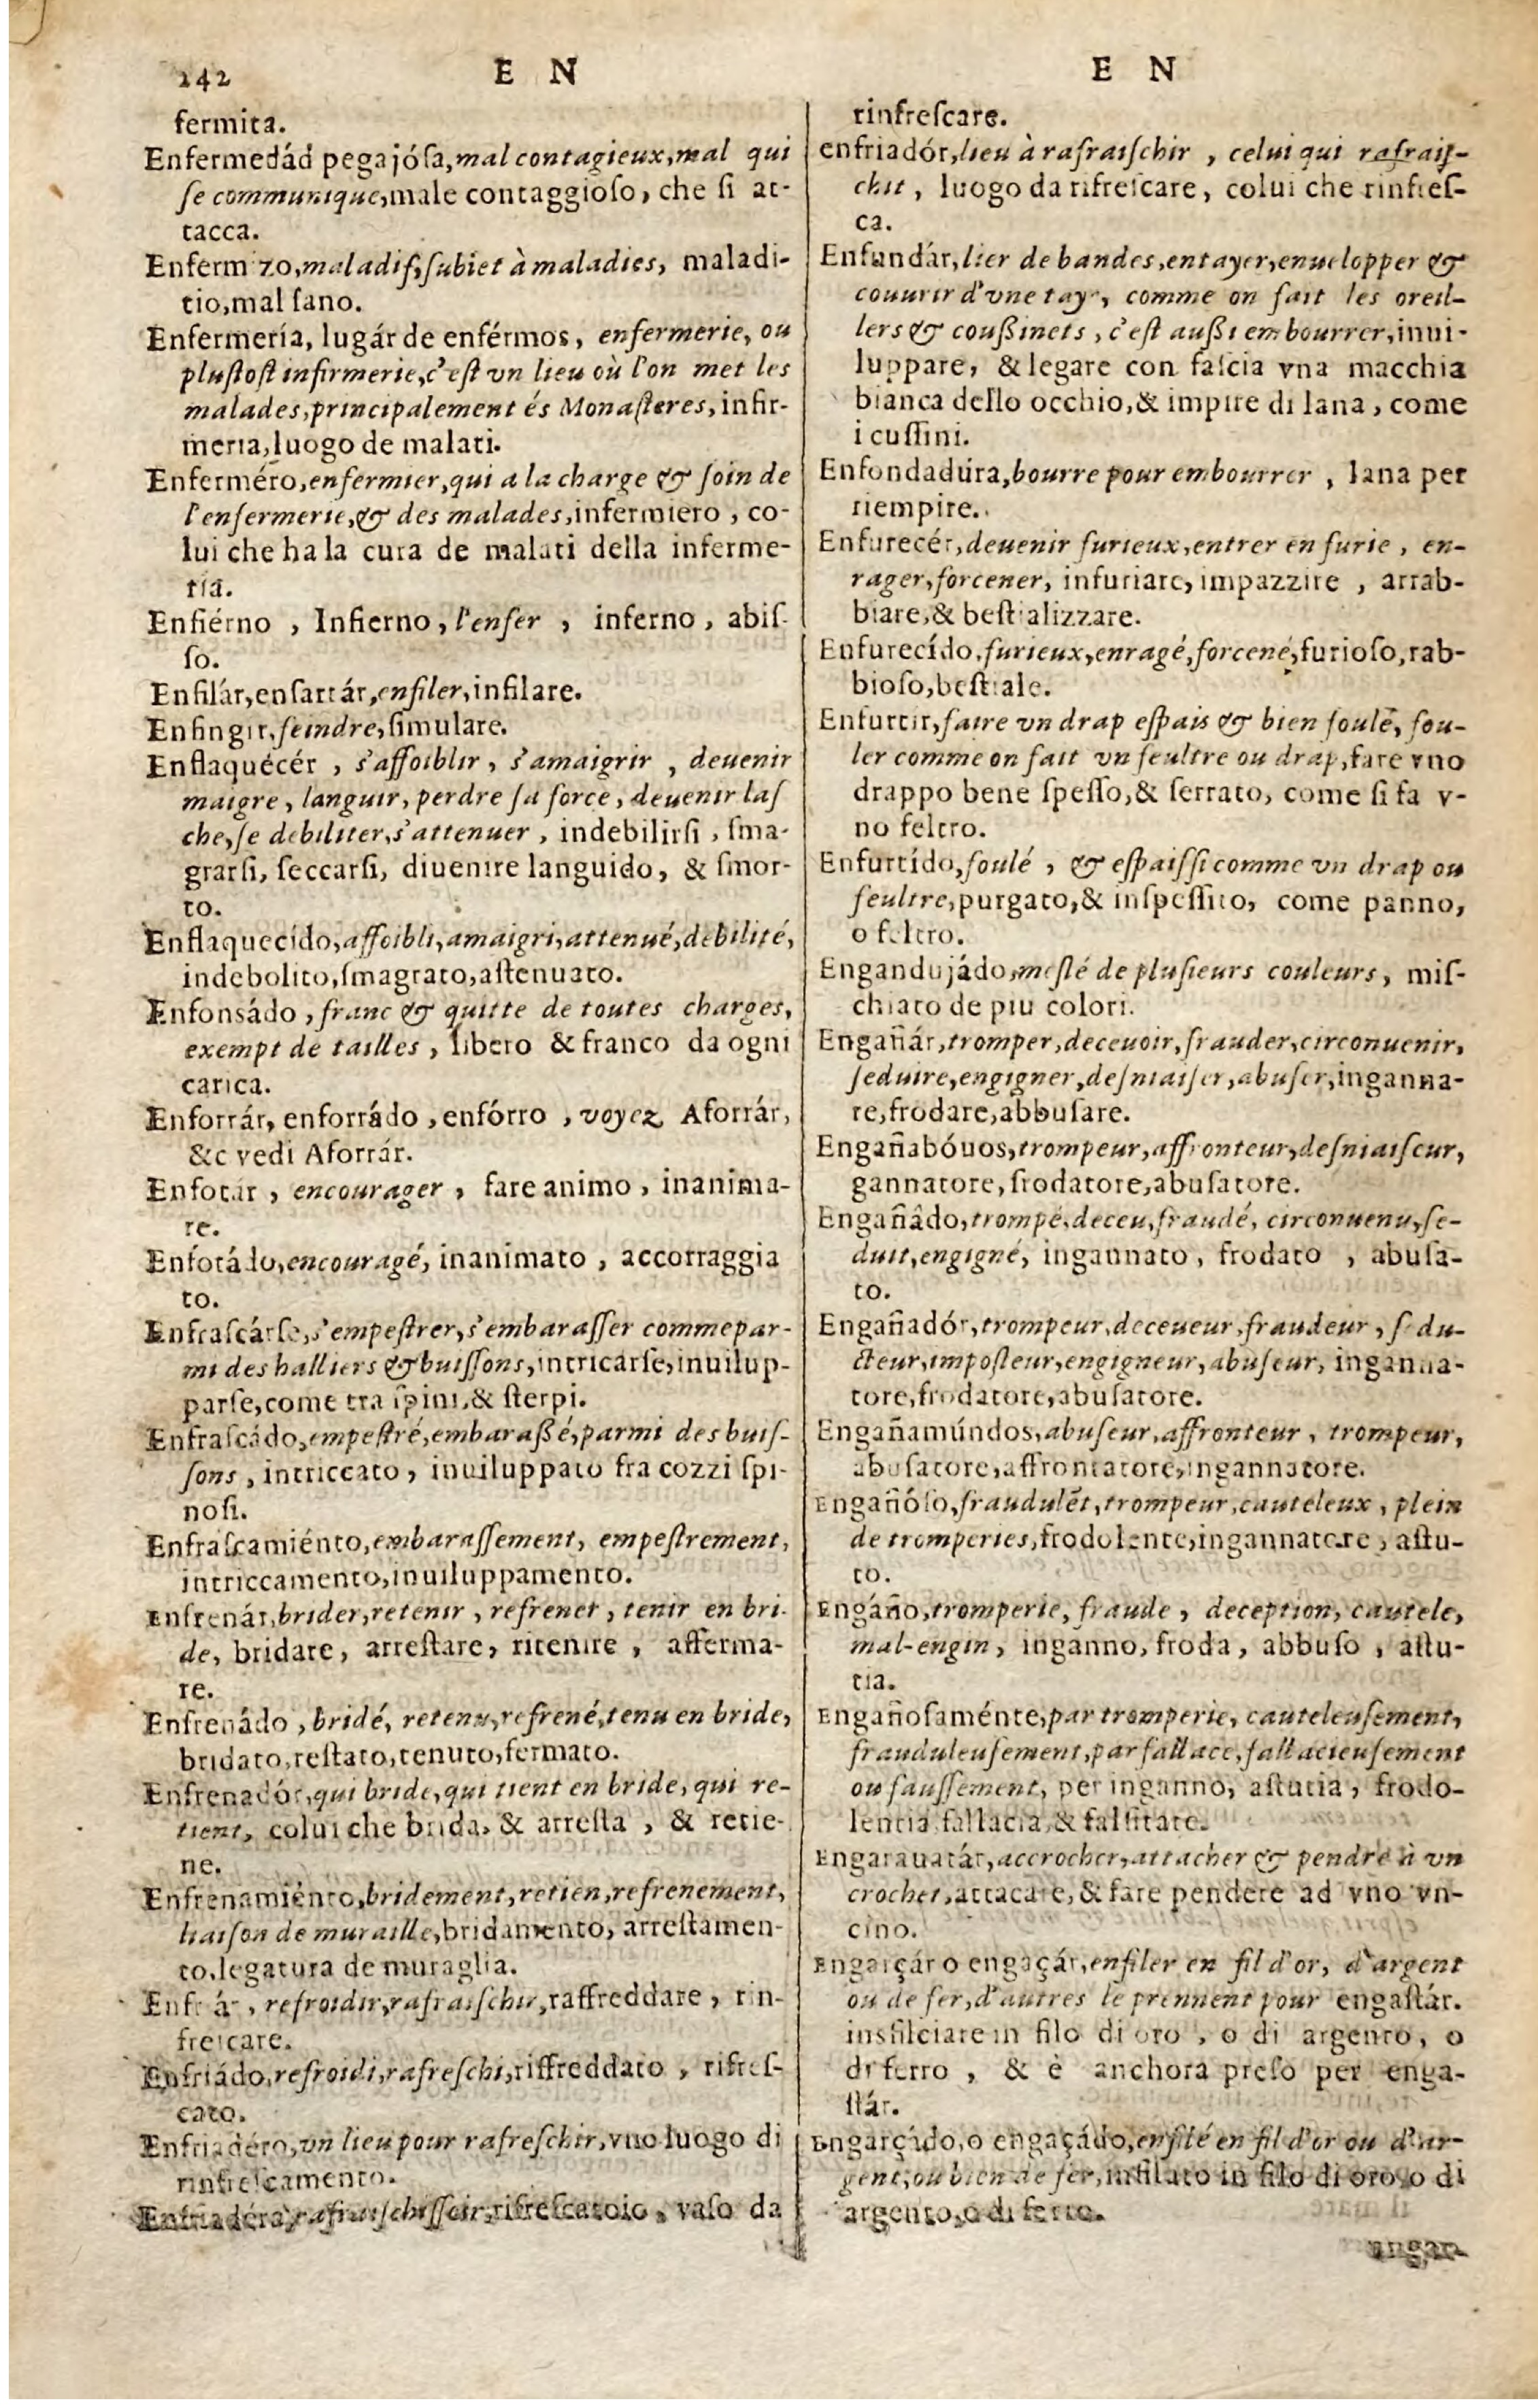 242 E N
fermita.
Enfermedád pegajósa, mal contagieux, mal qui
se communique, male contaggioso, che si at-
tacca.
Enferm zo, maladif, subiet à maladies, maladi-
tio, mal sano.
Enfermería, lugár de enférmos, enfermerie, ou
plustost infirmerie, c'est vn lieu où l'on met les
malades, principalement és Monasteres, infir-
meria, luogo de malati.
Enferméro, enfermier, qui a la charge & soin de
l'enfermerie, & des malades, infermiero, co-
lui che ha la cura de malati della inferme-
ria.
Enfiérno, Infierno, l'enfer, inferno, abis-
so.
Enfilár, ensartár, enfiler, infilare.
Enfingir, feindre, simulare.
Enflaquécér, s'affoiblir, s'amaigrir, deuenir
maigre, languir, perdre sa force, deuenir las
che, se debiliter, s'attenuer, indebilirsi, sma-
grarsi, seccarsi, diuenire languido, & smor-
to.
Enflaquecído, affoibli, amaigri, attenué, debilité,
indebolito, smagrato, astenuato.
Enfonsádo, franc & quitte de toutes charges,
exempt de tailles, libero & franco da ogni
carica.
Enforrár, enforrádo, enfórro, voyez Aforrár,
&c vedi Aforrár.
Enfotár, encourager, fare animo, inanima-
re.
Enfotádo, encouragé, inanimato, accorraggia
to.
Enfrascárse, s'empestrer, s'embarasser comme par-
mi des halliers & buissons, intricarse, inuilup-
parse, come tra spini, & sterpi.
Enfrascádo, empestré, embarassé, parmi des buis-
sons, intriccato, inuiluppato fra cozzi spi-
nosi.
Enfrascamiénto, embarassement, empestrement,
intriccamento, inuiluppamento.
Enfrenár, brider, retenir, refrener, tenir en bri-
de, bridare, arrestare, ritenire, afferma-
re.
Enfrenádo, bridé, retenu, refrené, tenu en bride,
bridato, restato, tenuto, fermato.
Enfrenadór, qui bride, qui tient en bride, qui re-
tient, colui che brida, & arresta, & retie-
ne.
Enfrenamiénto, bridement, retien, refrenement,
liaison de muraille, bridamento, arrestamen-
to, legatura de muraglia.
Enfr ár, refroidir, rafraischir, raffreddare, rin-
frescare.
Enfriádo, refroidi, rafreschi, riffreddato, rifres-
cato.
Enfriadéro, vn lieu pour rafreschir, vno luogo di
rinfrescamento.
Enfriadéra, rafraischissoir, rifrescatoio, vaso da
E N
rinfrescare.
enfriadór, lieu à rafraischir, celui qui rafrais-
chit, luogo da rifrescare, colui che rinfres-
ca.
Enfundár, lier de bandes, entayer, enuelopper &
couurir d'vne taye, comme on fait les oreil-
lers & coussinets, c'est aussi embourrer, inui-
luppare, & legare con fascia vna macchia
bianca dello occhio, & impire di lana, come
i cussini.
Enfondadúra, bourre pour embourrer, lana per
riempire.
Enfurecér, deuenir furieux, entrer en furie, en-
rager, forcener, infuriare, impazzire, arrab-
biare, & bestializzare.
Enfurecído, furieux, enragé, forcené, furioso, rab-
bioso, bestiale.
Enfurtir, faire vn drap espais & bien foulé, fou-
ler comme on fait vn feultre ou drap, fare vno
drappo bene spesso, & serrato, come si fa v-
no feltro.
Enfurtído, foulé, & espaissi comme vn drap ou
feultre, purgato, & inspessito, come panno,
o feltro.
Engandujádo, meslé de plusieurs couleurs, mis-
chiato de piu colori.
Engañár, tromper, deceuoir, frauder, circonuenir,
seduire, engigner, desniaiser, abuser, inganna-
re, frodare, abbusare.
Engañabóuos, trompeur, affronteur, desniaiseur,
gannatore, frodatore, abusatore.
Engañádo, trompé, deceu, fraudé, circonuenu, se-
duit, engigné, ingannato, frodato, abusa-
to.
Engañadór, trompeur, deceueur, fraudeur, sedu-
cteur, imposteur, engigneur, abuseur, inganna-
tore, frodatore, abusatore.
Engañamúndos, abuseur, affronteur, trompeur,
abusatore, affrontatore, ingannatore.
Engañóso, fraudulẽt, trompeur, cauteleux, plein
de tromperies, frodolente, ingannatore, astu-
to.
Engáño, tromperie, fraude, deception, cautele,
mal-engin, inganno, froda, abbuso, astu-
tia.
Engañosaménte, par tromperie, cauteleusement,
frauduleusement, par fallace, fallacieusement
ou faussement, per inganno, astutia, frodo-
lentia, fallacia, & falsitate.
Engarauatár, accrocher, attacher & pendre à vn
crochet, attacare, & fare pendere ad vno vn-
cino.
Engarçár o engaçár, enfiler en fil d'or, d'argent
ou de fer, d'autres le prennent pour engastár.
insfilciare in filo di oro, o di argento, o
di ferro, & è anchora preso per enga-
stár.
Engarçádo, o engaçádo, enfilé en fil d'or ou d'ar-
gent, ou bien de fer, infilato in filo di oro, o di
argento, o di ferro.
engar-